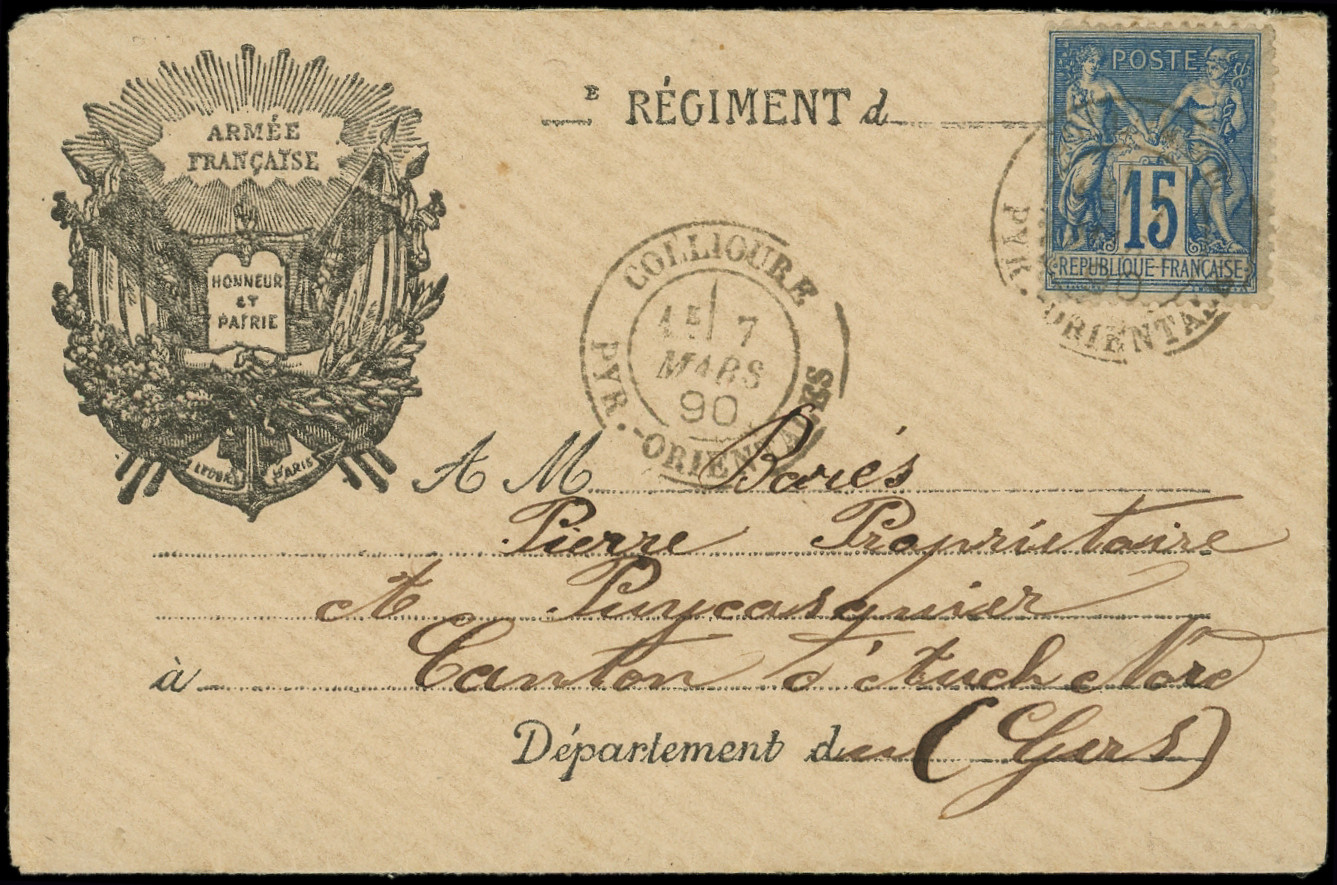 ARMÉE
FRANÇAISE
HONNEUR
ET
PATRIE
PARIS
E RÉGIMENT d
POSTE
15
REPUBLIQUE FRANÇAISE
PYR.-ORIENTALES
COLLIOURE
1E 7
MARS
90
PYR.-ORIENTALES
A M Bariés
Pierre Propriétaire
A Puycasquier
à Canton d'Auch Nord
Département du (Gers)